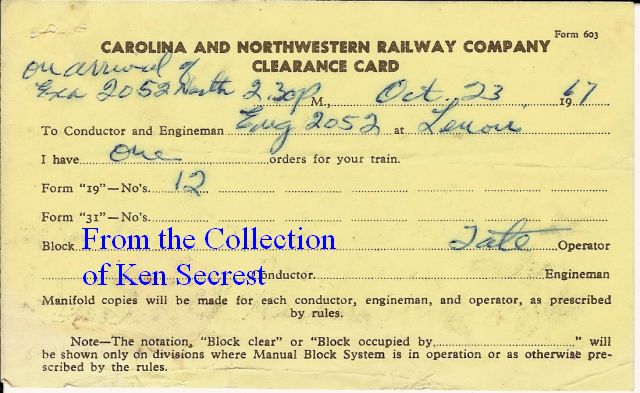 Form 603
CAROLINA AND NORTHWESTERN RAILWAY COMPANY
CLEARANCE CARD
on arrival of
Exa 2052 North 2 30p M., Oct. 23 1967
To Conductor and Engineman Eng 2052 at Lenoir
I have one orders for your train.
Form "19"—No's. 12
Form "31"—No's.
Block From the Collection Tate Operator
of Ken Secrest Conductor Engineman
Manifold copies will be made for each conductor, engineman, and operator, as prescribed
by rules.
Note—The notation, "Block clear" or "Block occupied by" will
be shown only on divisions where Manual Block System is in operation or as otherwise pre-
scribed by the rules.